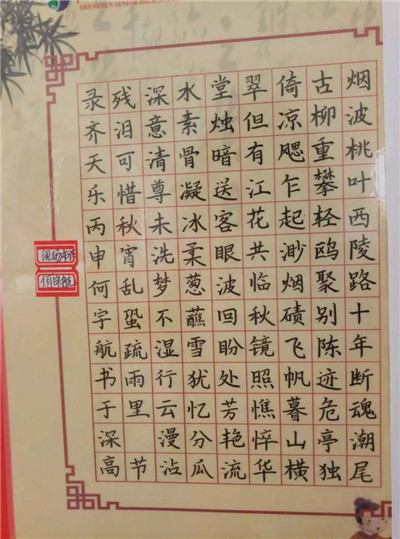 SHENZHEN SENIOR HIGH
烟波桃叶西陵路十年断魂潮尾
古柳重攀轻鸥聚别陈迹危亭独
倚凉飔乍起渺烟碛飞帆暮山横
翠但有江花共临秋镜照憔悴华
堂烛暗送客眼波回盼处芳艳流
水素骨凝冰柔葱蘸雪犹忆分瓜
深意清尊未洗梦不湿行云漫沾
残泪可惜秋宵乱蛩疏雨里 节
录齐天乐丙申何宇航书于深高